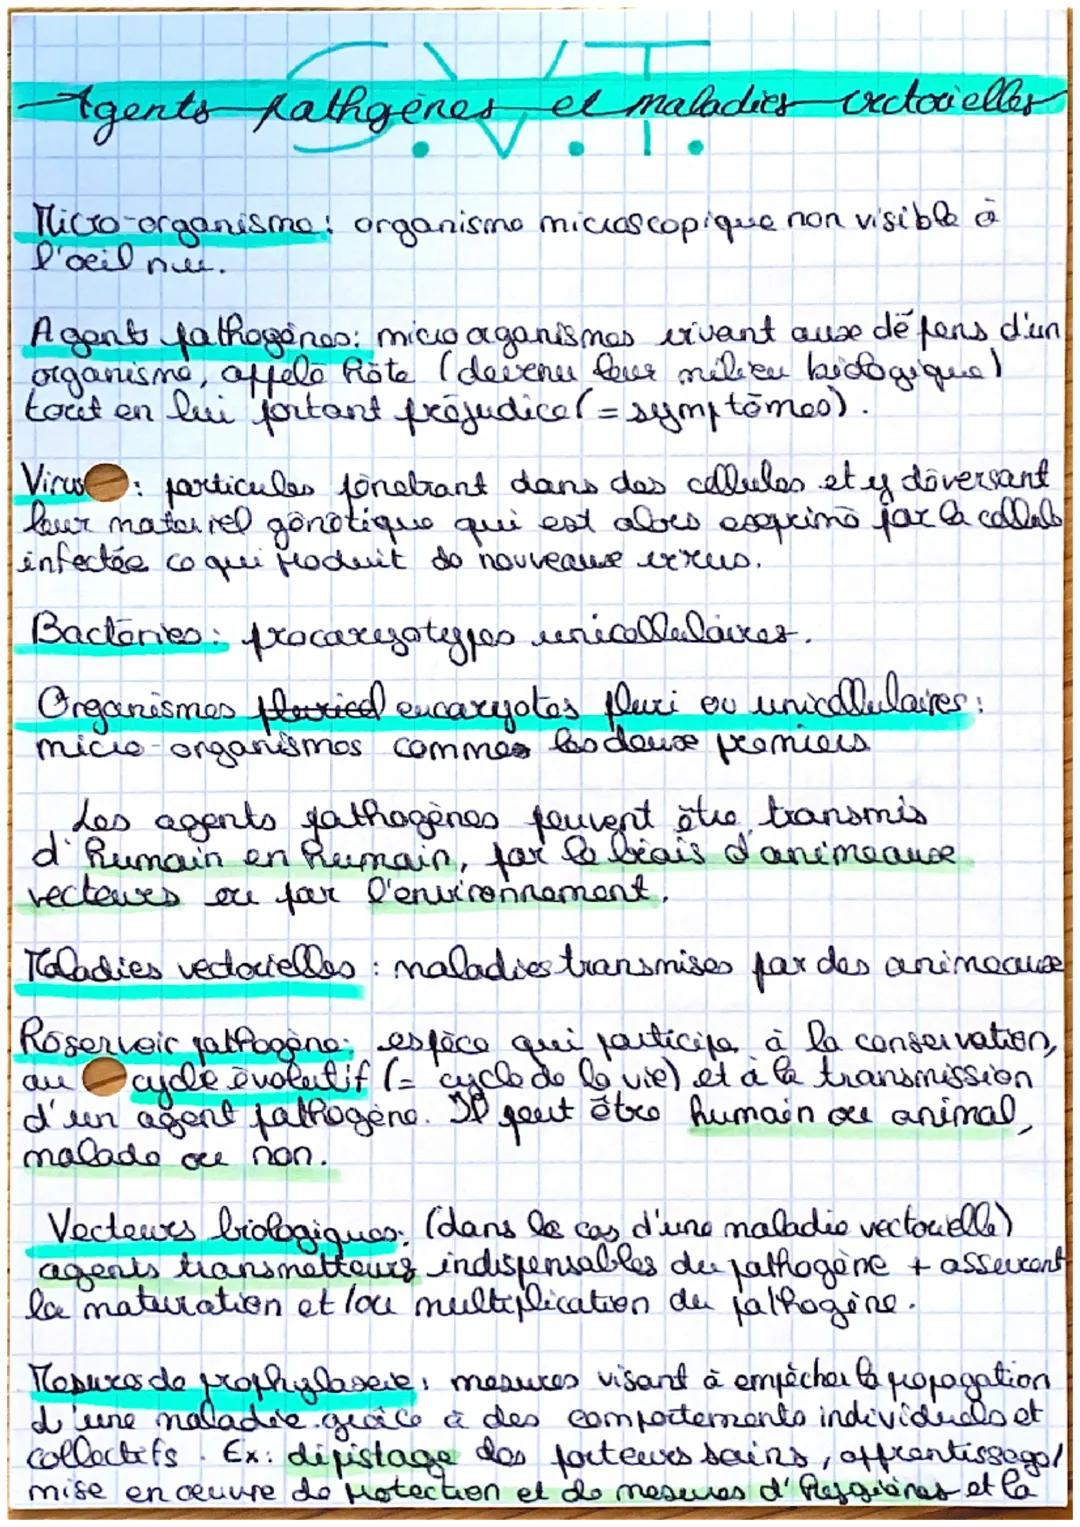 S.V.T.
Agents pathgènes et maladies vectorielles
Micro-organisme : organisme microscopique non visible à
l'oeil nu.
Agents pathogènes : micro organismes vivant aux dépens d'un
organisme, appelé hôte (devenu leur milieu biologique)
tout en lui portant préjudice (= symptômes).
Virus : particules pénetrant dans des cellules et y déversant
leur materiel génétique qui est alors exprimé par la cellule
infectée ce qui produit de nouveaux virus.
Bactéries : procaryotypes unicellulaires.
Organismes pluricel eucaryotes pluri ou unicellulaires :
micro-organismes comme les deux premiers
Les agents pathogènes peuvent être transmis
d'humain en humain, par le biais d'animeaux
vecteurs ou par l'environnement.
Maladies vectorielles : maladies transmises par des animeaux
Réservoir pathogène : espèce qui participe à la conservation,
au cycle évolutif (= cycle de la vie) et à la transmission
d'un agent pathogène. Il peut être humain ou animal,
malade ou non.
Vecteurs biologiques : (dans le cas d'une maladie vectorielle)
agents transmetteurs indispensables du pathogène + assurent
la maturation et/ou multiplication du pathogène.
Mesures de prophylaxie : mesures visant à empêcher la propagation
d'une maladie grâce à des comportements individuels et
collectifs. Ex : dépistage des porteurs sains, apprentissage/
mise en œuvre de protection et de mesures d'hygiènes et la